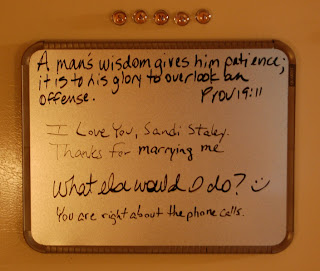 A man's wisdom gives him patience;
it is to his glory to overlook an
offense. Prov 19:11
I Love You, Sandi Staley.
Thanks for marrying me
What else would I do? ☺
You are right about the phone calls.